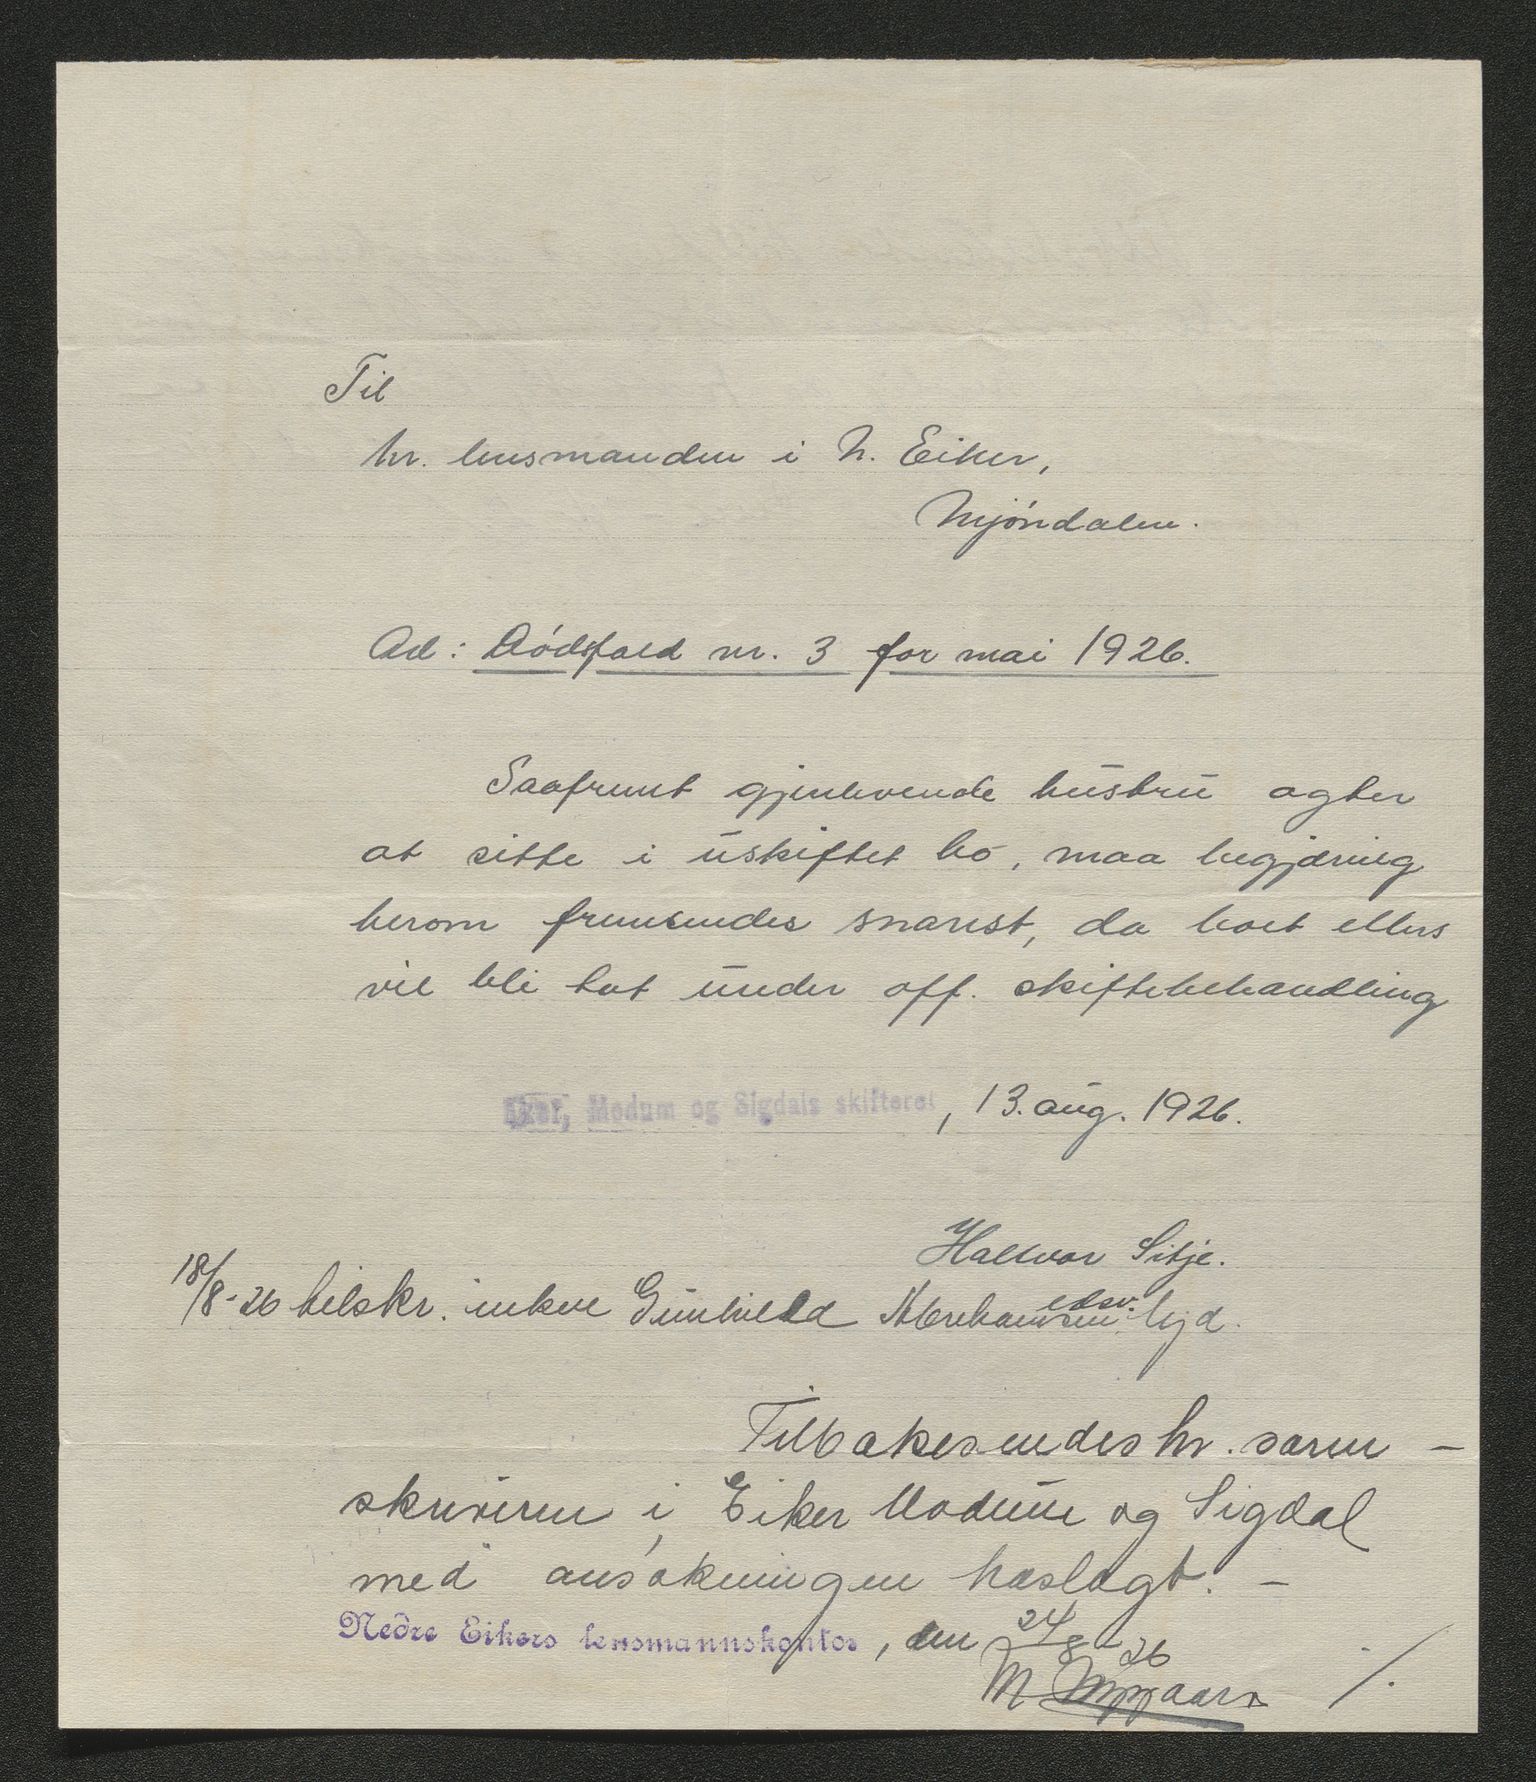 Til
hr. lensmanden i N. Eiker,
Mjøndalen.
Ad: Dødsfald nr. 3 for mai 1926.
Saafremt gjenlevende hustru agter
at sitte i uskiftet bo, maa begjæring
herom fremsendes snarest, da boet ellers
vil bli tat under off. skiftebehandling
Eiker, Modum og Sigdals skifteret, 13. aug. 1926.
Hallvor Sitje.
edsv.
18/8-26 tilskr. enken Gunhild Abrahamsen hjd.
Tilbakesendes hr. soren-
skriveren i Eiker Modum og Sigdal
med ansøkningen hoslagt. -
Nedre Eikers lensmannskontor, den 24/8-26
M
./.